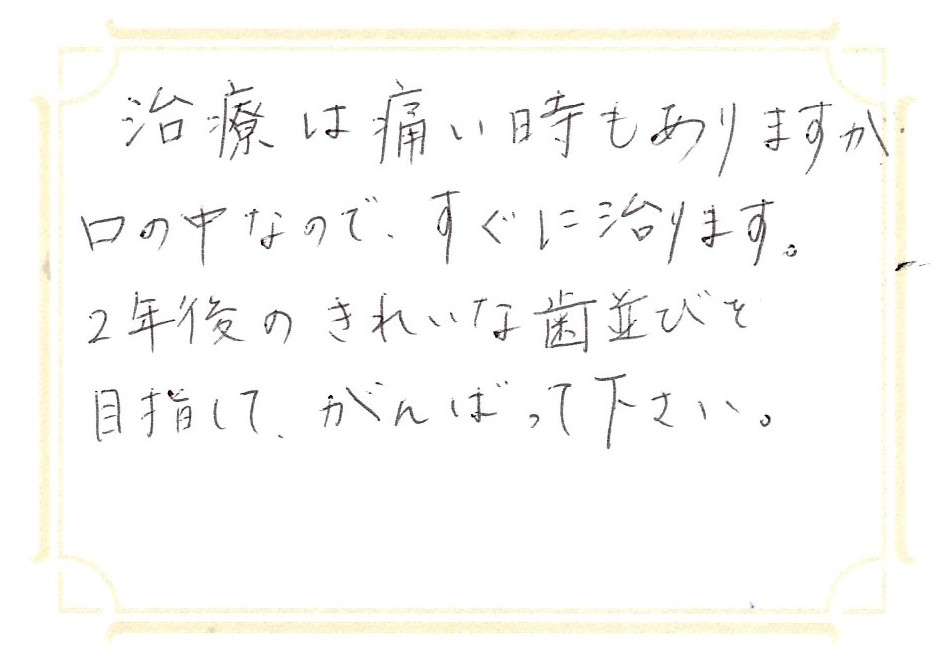 治療は痛い時もありますが
口の中なので、すぐに治ります。
2年後のきれいな歯並びを
目指して、がんばって下さい。